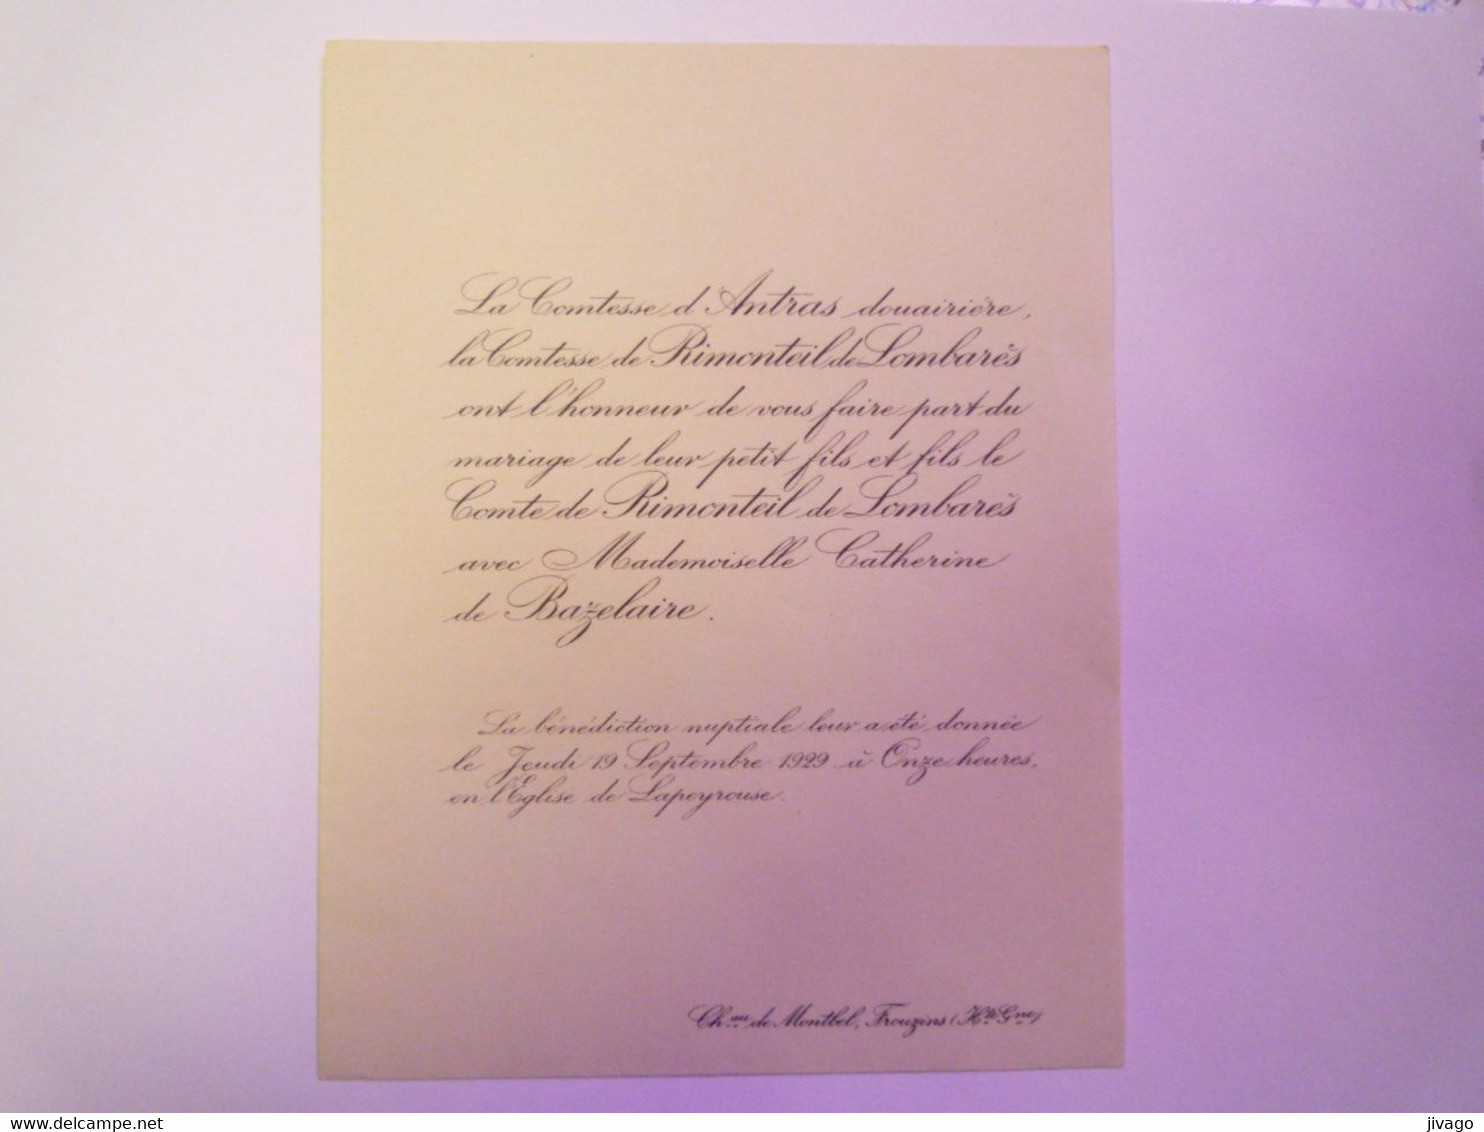 La Comtesse d'Antras douairière,
la Comtesse de Rimonteil de Lombarès
ont l'honneur de vous faire part du
mariage de leur petit fils et fils le
Comte de Rimonteil de Lombarès
avec Mademoiselle Catherine
de Bazelaire.
La bénédiction nuptiale leur a été donnée
le Jeudi 19 Septembre 1929 à Onze heures,
en l'Eglise de Lapeyrouse.
Ch.au de Montbel, Frouzins (Hte Gne)
delcampe.net
jivago